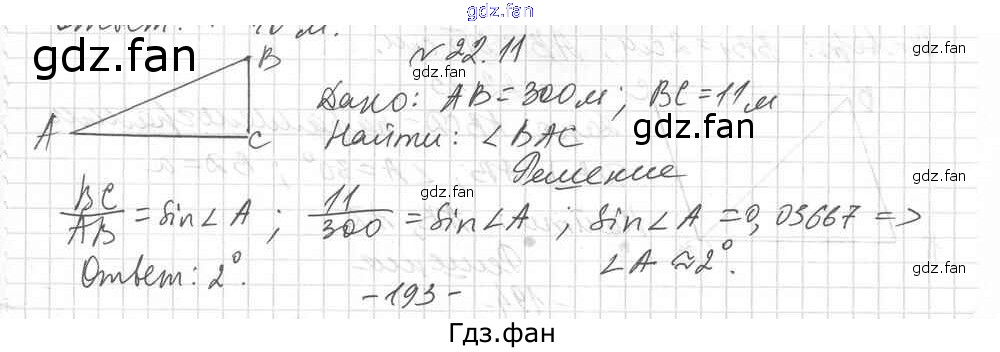 gdz.fan
Ответ: 10 м.
gdz.fan
№ 22.11
gdz.fan
B
A
C
Дано: AB = 300 м; BC = 11 м
gdz.fan
Найти: ∠BAC
Решение
gdz.fan
gdz.fan
BC/AB = sin∠A; 11/300 = sin∠A; sin∠A = 0,03667 =>
∠A ≈ 2°.
gdz.fan
gdz.fan
Ответ: 2°.
- 193 -
Гдз.фан